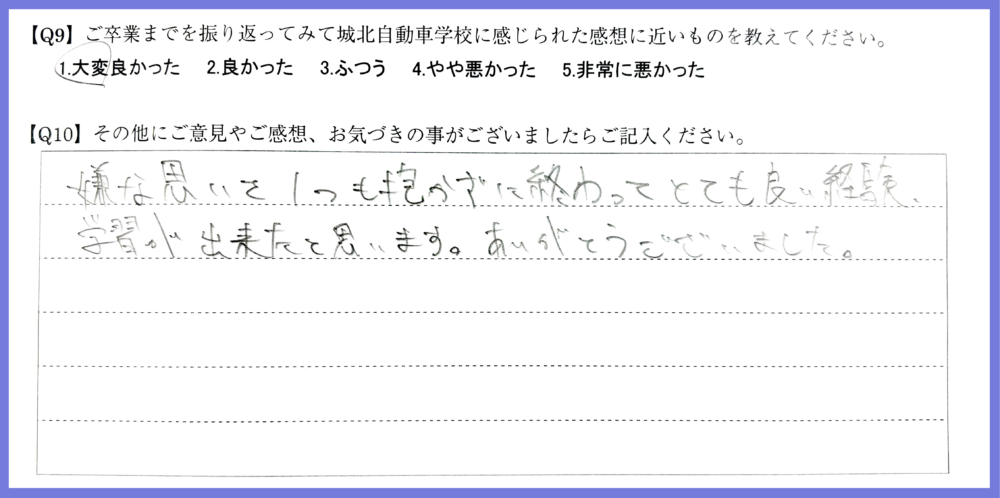 【Q9】ご卒業までを振り返ってみて城北自動車学校に感じられた感想に近いものを教えてください。
1.大変良かった 2.良かった 3.ふつう 4.やや悪かった 5.非常に悪かった
【Q10】その他にご意見やご感想、お気づきの事がございましたらご記入ください。
嫌な思いを1つも抱かずに終わってとても良い経験、
学習が出来たと思います。ありがとうございました。